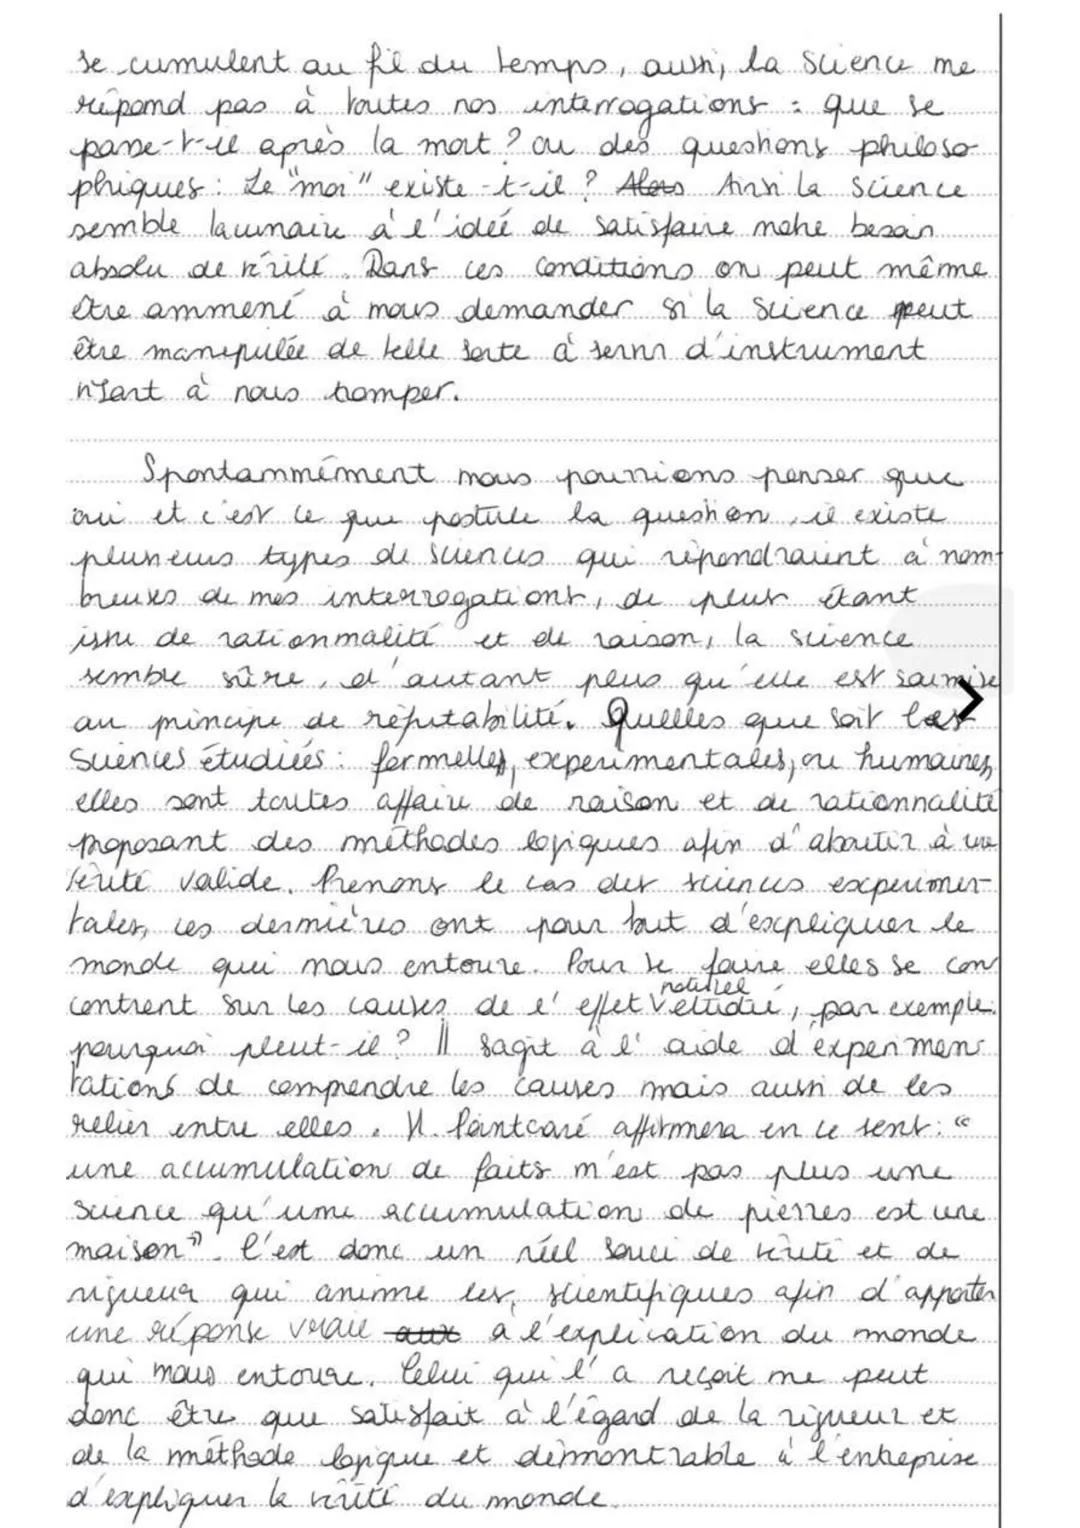 se cumulent au fil du temps, aussi, la science ne
répond pas à toutes nos interrogations : que se
passe-t-il après la mort ? ou des questions philoso
phiques : Le "moi" existe-t-il ? Alors Ainsi la science
semble lacunaire à l'idée de satisfaire notre besoin
absolu de vérité. Dans ces conditions on peut même
être ammené à nous demander si la science peut
être manipulée de telle sorte à servir d'instrument
visant à nous tromper.
Spontammément nous pourrions penser que
oui et c'est ce que postule la question, il existe
plusieurs types de sciences qui répondraient à nom-
breuses de nos interrogations, de plus étant
issu de rationnalité et de raison, la science
semble sûre, d'autant plus qu'elle est soumise
au principe de réfutabilité. Quelles que soit les
sciences étudiées : formelles, experimentales, ou humaines,
elles sont toutes affaire de raison et de rationnalité
proposant des méthodes logiques afin d'aboutir à une
vérité valide. Prenons le cas des sciences experimen-
tales, ces dernières ont pour but d'expliquer le
monde qui nous entoure. Pour se faire elles se con
centrent sur les causes de l'effet naturel étudié, par exemple :
pourquoi pleut-il ? Il sagit à l'aide d'expérimen
tations de comprendre les causes mais aussi de les
relier entre elles. H. Pointcaré affirmera en ce sens : "
une accumulation de faits n'est pas plus une
science qu'une accumulation de pierres est une
maison". C'est donc un réel souci de vérité et de
rigueur qui anime les scientifiques afin d'apporter
une réponse vraie aux à l'explication du monde
qui nous entoure. Celui qui l'a reçoit ne peut
donc être que satisfait à l'égard de la rigueur et
de la méthode logique et démontrable à l'entreprise
d'expliquer la vérité du monde.